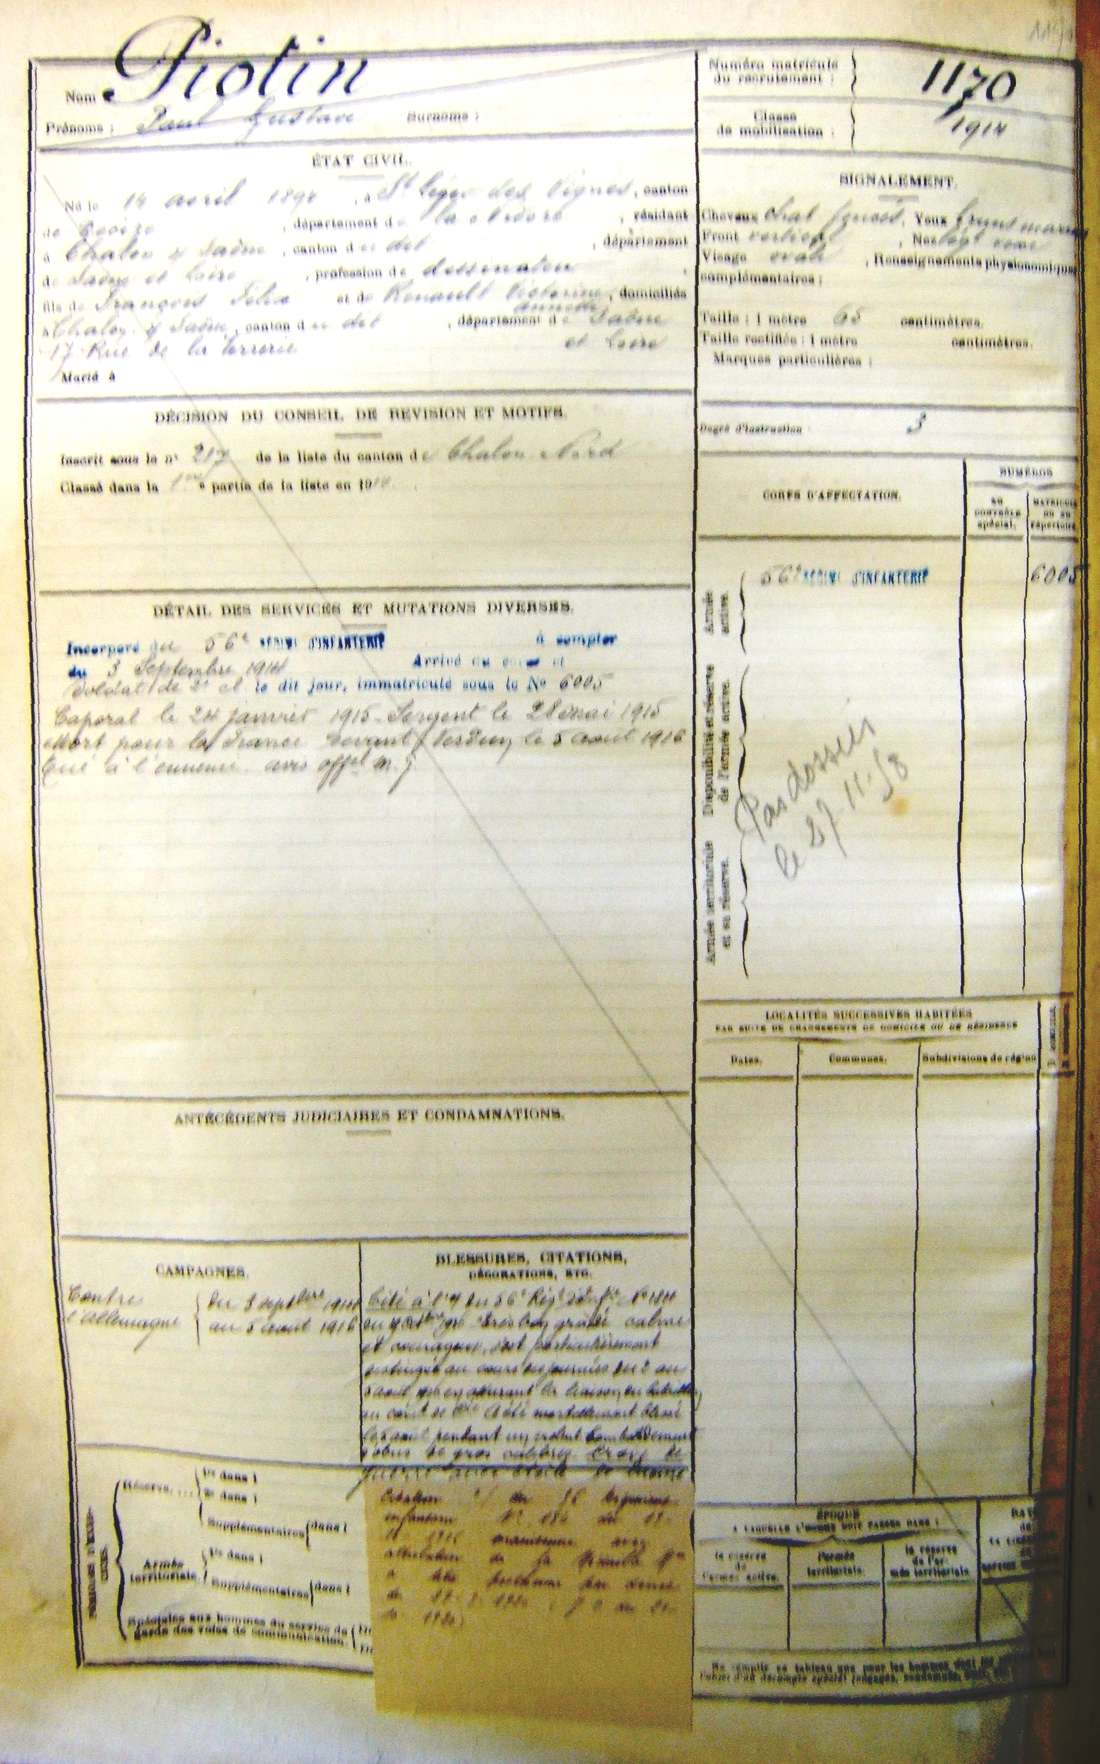 Nom : Piotin
Prénoms : Paul Gustave Surnoms :
Numéro matricule du recrutement : 1170
Classe de mobilisation : 1914
ÉTAT CIVIL.
Né le 14 avril 1894, à St Léger des Vignes, canton
de Decize, département de la Nièvre, résidant
à Chalon s/ Saône, canton du dit, département
de Saône et Loire, profession de dessinateur
fils de François Félix et de Renault Victorine Annette, domiciliés
à Chalon s/ Saône, canton du dit, département de Saône
17 Rue de la et Loire
Marié à
SIGNALEMENT.
Cheveux chat foncés. Yeux
Front vertical, Nez
Visage ovale, Renseignements physionomiques
complémentaires :
Taille : 1 mètre 65 centimètres.
Taille rectifiée : 1 mètre centimètres.
Marques particulières :
Degré d'instruction 3
DÉCISION DU CONSEIL DE REVISION ET MOTIFS.
Inscrit sous le n° 217 de la liste du canton de Chalon Nord
Classé dans la 1re partie de la liste en 1914.
CORPS D'AFFECTATION.
NUMÉROS
AU CONTRÔLE spécial.
MATRICULE OU AU répertoire.
Armée active.
56e RÉGIMT D'INFANTERIE 6005
Disponibilité et réserve de l'armée active.
Armée territoriale et sa réserve.
Pas dossier
le 27-11-58
DÉTAIL DES SERVICES ET MUTATIONS DIVERSES.
Incorporé au 56e RÉGIMT D'INFANTERIE à compter
du 3 Septembre 1914 Arrivé au corps et
Soldat de 2e cl. le dit jour, immatriculé sous le No 6005
Caporal le 24 janvier 1915 - Sergent le 28 mai 1915
Mort pour la France devant Verdun, le 5 août 1916
Tué à l'ennemi avis offel m. g
LOCALITÉS SUCCESSIVES HABITÉES
PAR SUITE DE CHANGEMENTS DE DOMICILE OU DE RÉSIDENCE
Dates. Communes. Subdivisions de région
ANTÉCÉDENTS JUDICIAIRES ET CONDAMNATIONS.
CAMPAGNES.
Contre l'Allemagne
du 3 septbre 1914
au 5 août 1916
BLESSURES, CITATIONS,
DÉCORATIONS, ETC.
Cité à l'o/ du 56e Régt d'Infie No 184
gradé calme
et courageux, s'est particulièrement
distingué au cours des journées du 2 au
5 août 1916 en assurant la liaison du bataillon
A été mortellement blessé
le 5 août pendant un violent bombardement
d'obus de gros calibre. Croix de
guerre avec étoile de bronze
Citation du 56 Régiment
infanterie No 184 du
1916 avec
attribution de la Médaille Mre
à titre posthume
1920
Réserve
1re dans l
2e dans l
Supplémentaires dans l
Armée territoriale.
1re dans l
Supplémentaires dans l
Spéciales aux hommes du service de
garde des voies de communication.
ÉPOQUE
A LAQUELLE L'HOMME DOIT PASSER DANS :
la réserve de l'armée active.
l'armée territoriale.
la réserve de l'armée territoriale
Ne remplir ce tableau que pour les hommes dont les
l'objet d'un décompte spécial (engagés,